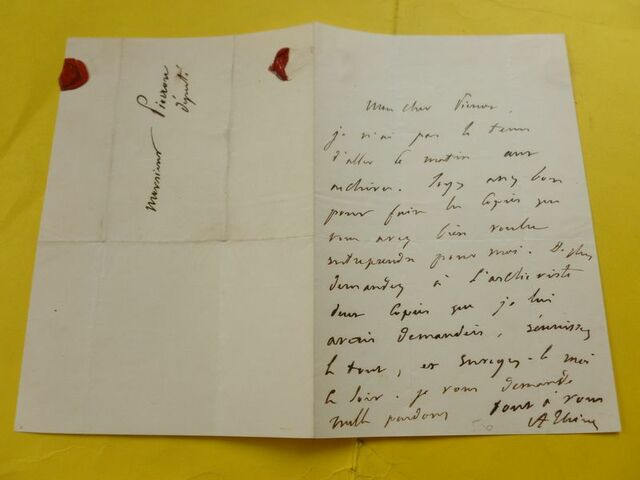 Monsieur Pierron
député
Mon cher Pierron,
je n'ai pas le tems
d'aller ce matin aux
archives. Soyez assez bon
pour faire les copies que
vous avez bien voulu
entreprendre pour moi. De plus
demandez à l'archiviste
deux copies que je lui
avais demandées, réunissez
le tout, et envoyez-le moi
ce soir. je vous demande
mille pardons tout à vous
A Thiers